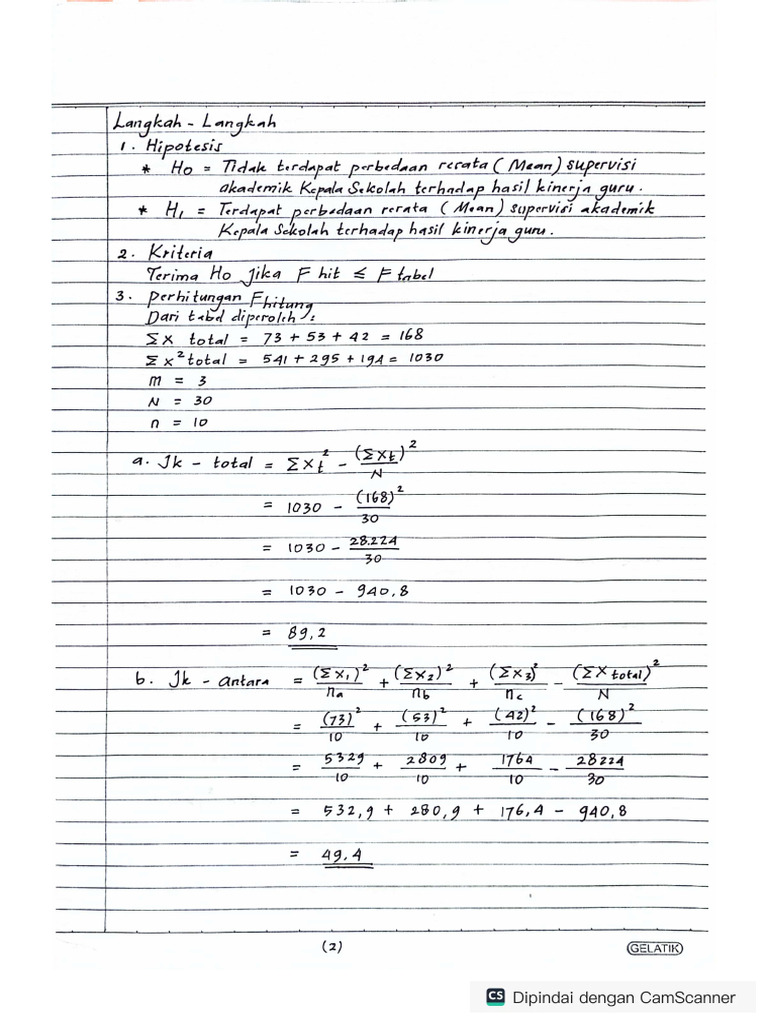 Langkah - Langkah
1. Hipotesis
* Ho = Tidak terdapat perbedaan rerata (Mean) supervisi
akademik Kepala Sekolah terhadap hasil kinerja guru.
* H₁ = Terdapat perbedaan rerata (Mean) supervisi akademik
Kepala Sekolah terhadap hasil kinerja guru.
2. Kriteria
Terima Ho Jika F hit ≤ F tabel
3. Perhitungan Fhitung
Dari tabel diperoleh:
Σx total = 73 + 53 + 42 = 168
Σx² total = 541 + 295 + 194 = 1030
m = 3
N = 30
n = 10
a. Jk - total = ΣXt² - (ΣXt)²/N
= 1030 - (168)²/30
= 1030 - 28.224/30
= 1030 - 940,8
= 89,2
b. Jk - antara = (ΣX₁)²/na + (ΣX₂)²/nb + (ΣX3)²/nc - (ΣX total)²/N
= (73)²/10 + (53)²/10 + (42)²/10 - (168)²/30
= 5329/10 + 2809/10 + 1764/10 - 28224/30
= 532,9 + 280,9 + 176,4 - 940,8
= 49.4
(2)
GELATIK
CS Dipindai dengan CamScanner